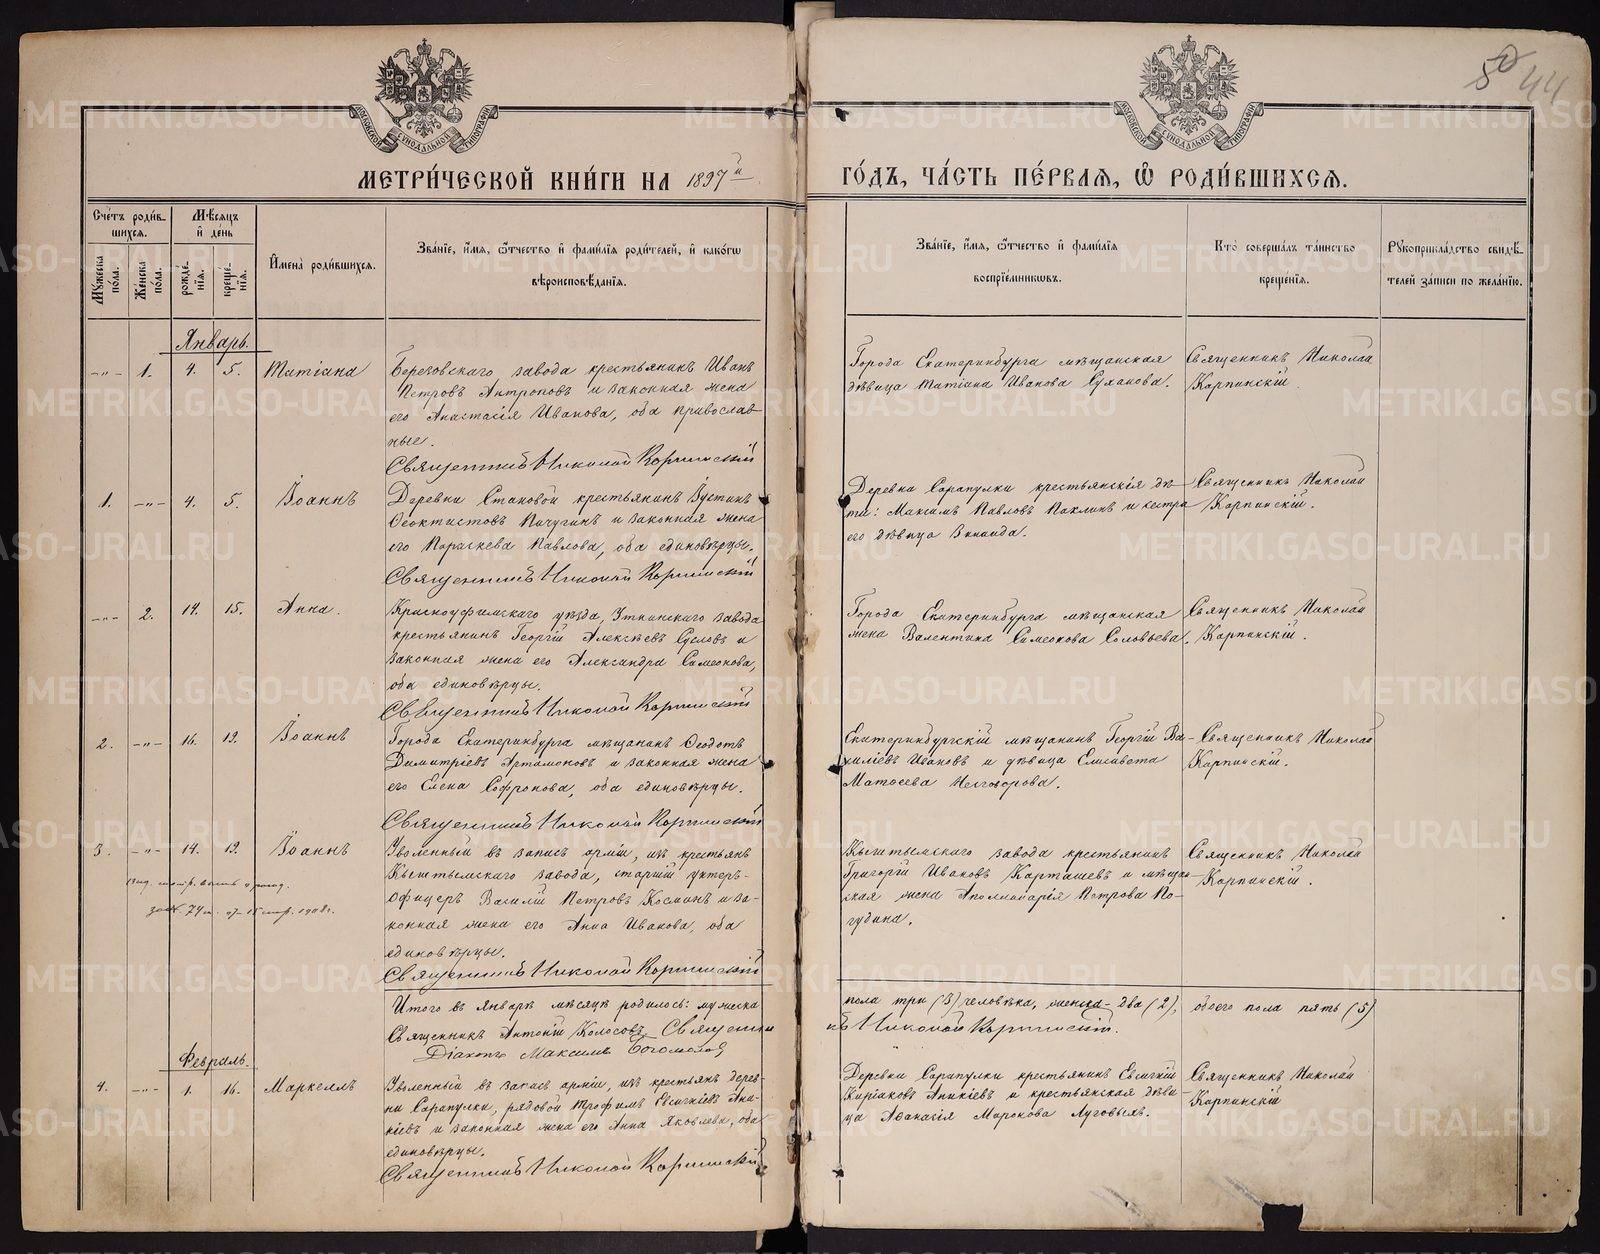 50 44
МОСКОВСКОЙ СѴНОДАЛЬНОЙ ТИПОГРАФІИ
МОСКОВСКОЙ СѴНОДАЛЬНОЙ ТИПОГРАФІИ
МЕТРИ́ЧЕСКОЙ КНИ́ГИ НА 1897й
ГО́ДЪ, ЧА́СТЬ ПЕ́РВАЯ, Ѡ РОДИ́ВШИХСЯ.
Сче́тъ роди́в-
шихся.
Му́жеска пола.
Же́нска пола.
Мѣ́сяцъ
и де́нь
рожде́-
нія.
креще́-
нія.
Имена̀ роди́вшихся.
Зва́ніе, и́мя, ѻ́тчество и фами́лія роди́телей, и како́гѡ
вѣроисповѣ́данія.
Зва́ніе, и́мя, ѻ́тчество и фами́лія
воспріе́мникѡвъ.
Кто̀ соверша́лъ та́инство
креще́нія.
Рукоприкла́дство свидѣ́-
телей за́писи по жела́нію.
Январь.
-"- 1. 4. 5. Татіана
Березовскаго завода крестьянинъ Иванъ
Петровъ Антроповъ и законная жена
его Анастасія Иванова, оба православ-
ные.
Священникъ Николай Карпинскій
Города Екатеринбурга мѣщанская
дѣвица Татіана Иванова Суханова.
Священникъ Николай
Карпинскій.
1. -"- 4. 5. Іоаннъ
Деревни Становой крестьянинъ Іустинъ
Ѳеоктистовъ Пичугинъ и законная жена
его Параскева Павлова, оба единовѣрцы.
Священникъ Николай Карпинскій
Деревни Сарапулки крестьянскія дѣ-
ти: Максимъ Павловъ Паклинъ и сестра
его дѣвица Зинаида.
Священникъ Николай
Карпинскій.
-"- 2. 14. 15. Анна.
Красноуфимскаго уѣзда, Уткинскаго завода
крестьянинъ Георгій Алексѣевъ Сусловъ и
законная жена его Александра Симеонова,
оба единовѣрцы.
Священникъ Николай Карпинскій
Города Екатеринбурга мѣщанская
жена Валентина Симеонова Соловьева.
Священникъ Николай
Карпинскій.
2. -"- 16. 19. Іоаннъ
Города Екатеринбурга мѣщанинъ Ѳеодотъ
Димитріевъ Артамоновъ и законная жена
его Елена Софронова, оба единовѣрцы.
Священникъ Николай Карпинскій
Екатеринбургскій мѣщанинъ Георгій Ва-
силіевъ Ивановъ и дѣвица Елисавета
Матѳеева Несговорова.
Священникъ Николай
Карпинскій.
3. -"- 14. 19. Іоаннъ
74 15 1908 г.
Уволенный въ запасъ арміи, изъ крестьянъ
Кыштымскаго завода, старшій унтеръ-
офицеръ Василій Петровъ Косминъ и за-
конная жена его Анна Иванова, оба
единовѣрцы.
Священникъ Николай Карпинскій
Кыштымскаго завода крестьянинъ
Григорій Ивановъ Карташевъ и мѣщан-
ская жена Аполлинарія Петрова По-
гудина.
Священникъ Николай
Карпинскій.
Итого въ Январѣ мѣсяцѣ родилось: мужеска
пола три (3) человѣка, женска - два (2), обоего пола пять (5)
Священникъ Антоній Колосовъ Священни
къ Николай Карпинскій.
Діаконъ Максимъ Богомолов
Февраль.
4. -"- 1. 16. Маркеллъ
Уволенный въ запасъ арміи, изъ крестьянъ дерев-
ни Сарапулки, рядовой Трофимъ Евсигніевъ Ани-
кіевъ и законная жена его Анна Яковлева, оба
единовѣрцы.
Священникъ Николай Карпинскій
Деревни Сарапулки крестьянинъ Евсигній
Киріаковъ Аникіевъ и крестьянская дѣви-
ца Аѳанасія Миронова Луговыхъ.
Священникъ Николай
Карпинскій
METRIKI.GASO-URAL.RU